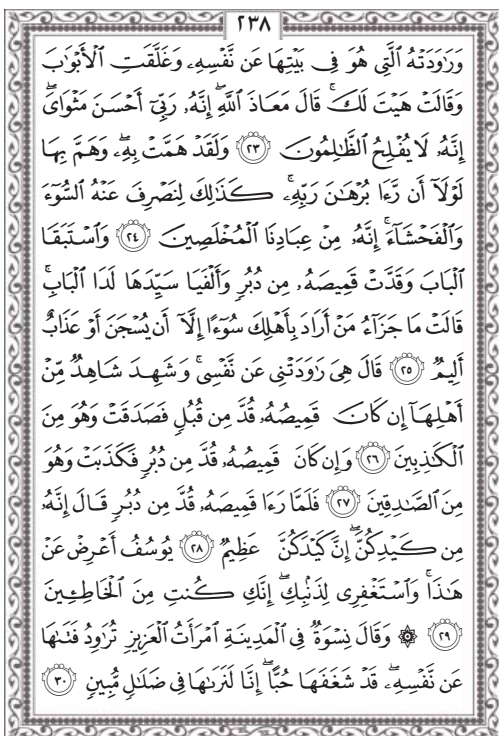 ٢٣٨
وَرَٰوَدَتْهُ ٱلَّتِى هُوَ فِى بَيْتِهَا عَن نَّفْسِهِۦ وَغَلَّقَتِ ٱلْأَبْوَٰبَ
وَقَالَتْ هَيْتَ لَكَ ۚ قَالَ مَعَاذَ ٱللَّهِ ۖ إِنَّهُۥ رَبِّىٓ أَحْسَنَ مَثْوَاىَ ۖ
إِنَّهُۥ لَا يُفْلِحُ ٱلظَّٰلِمُونَ ٢٣ وَلَقَدْ هَمَّتْ بِهِۦ ۖ وَهَمَّ بِهَا
لَوْلَآ أَن رَّءَا بُرْهَٰنَ رَبِّهِۦ ۚ كَذَٰلِكَ لِنَصْرِفَ عَنْهُ ٱلسُّوٓءَ
وَٱلْفَحْشَآءَ ۚ إِنَّهُۥ مِنْ عِبَادِنَا ٱلْمُخْلَصِينَ ٢٤ وَٱسْتَبَقَا
ٱلْبَابَ وَقَدَّتْ قَمِيصَهُۥ مِن دُبُرٍ وَأَلْفَيَا سَيِّدَهَا لَدَا ٱلْبَابِ ۚ
قَالَتْ مَا جَزَآءُ مَنْ أَرَادَ بِأَهْلِكَ سُوٓءًا إِلَّآ أَن يُسْجَنَ أَوْ عَذَابٌ
أَلِيمٌ ٢٥ قَالَ هِىَ رَٰوَدَتْنِى عَن نَّفْسِى ۚ وَشَهِدَ شَاهِدٌ مِّنْ
أَهْلِهَآ إِن كَانَ قَمِيصُهُۥ قُدَّ مِن قُبُلٍ فَصَدَقَتْ وَهُوَ مِنَ
ٱلْكَٰذِبِينَ ٢٦ وَإِن كَانَ قَمِيصُهُۥ قُدَّ مِن دُبُرٍ فَكَذَبَتْ وَهُوَ
مِنَ ٱلصَّٰدِقِينَ ٢٧ فَلَمَّا رَءَا قَمِيصَهُۥ قُدَّ مِن دُبُرٍ قَالَ إِنَّهُۥ
مِن كَيْدِكُنَّ ۖ إِنَّ كَيْدَكُنَّ عَظِيمٌ ٢٨ يُوسُفُ أَعْرِضْ عَنْ
هَٰذَا ۚ وَٱسْتَغْفِرِى لِذَنۢبِكِ ۖ إِنَّكِ كُنتِ مِنَ ٱلْخَاطِـِٔينَ
٢٩ ۞ وَقَالَ نِسْوَةٌ فِى ٱلْمَدِينَةِ ٱمْرَأَتُ ٱلْعَزِيزِ تُرَٰوِدُ فَتَىٰهَا
عَن نَّفْسِهِۦ ۖ قَدْ شَغَفَهَا حُبًّا ۖ إِنَّا لَنَرَىٰهَا فِى ضَلَٰلٍ مُّبِينٍ ٣٠